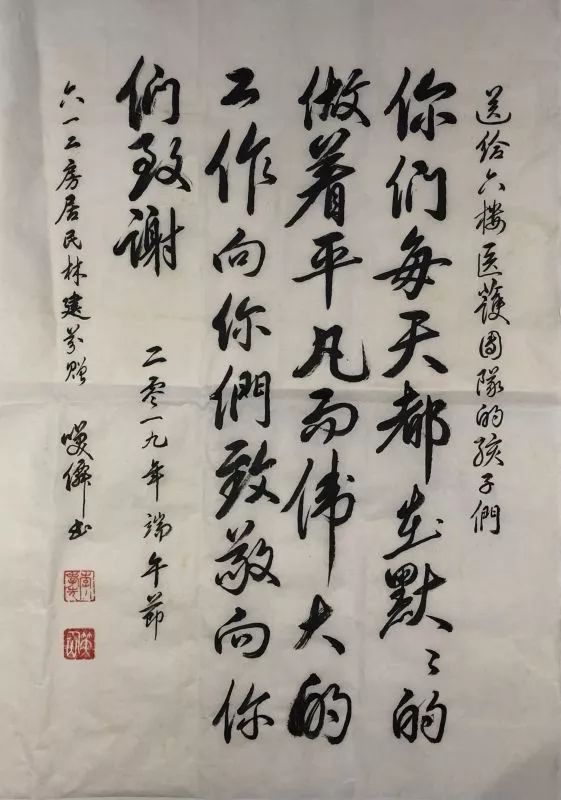 送给六楼医護团隊的孩子們
你们每天都在默々的
做着平凡而伟大的
工作向你們致敬向你
们致谢
二零一九年端午節
六一二房居民林建芬赠